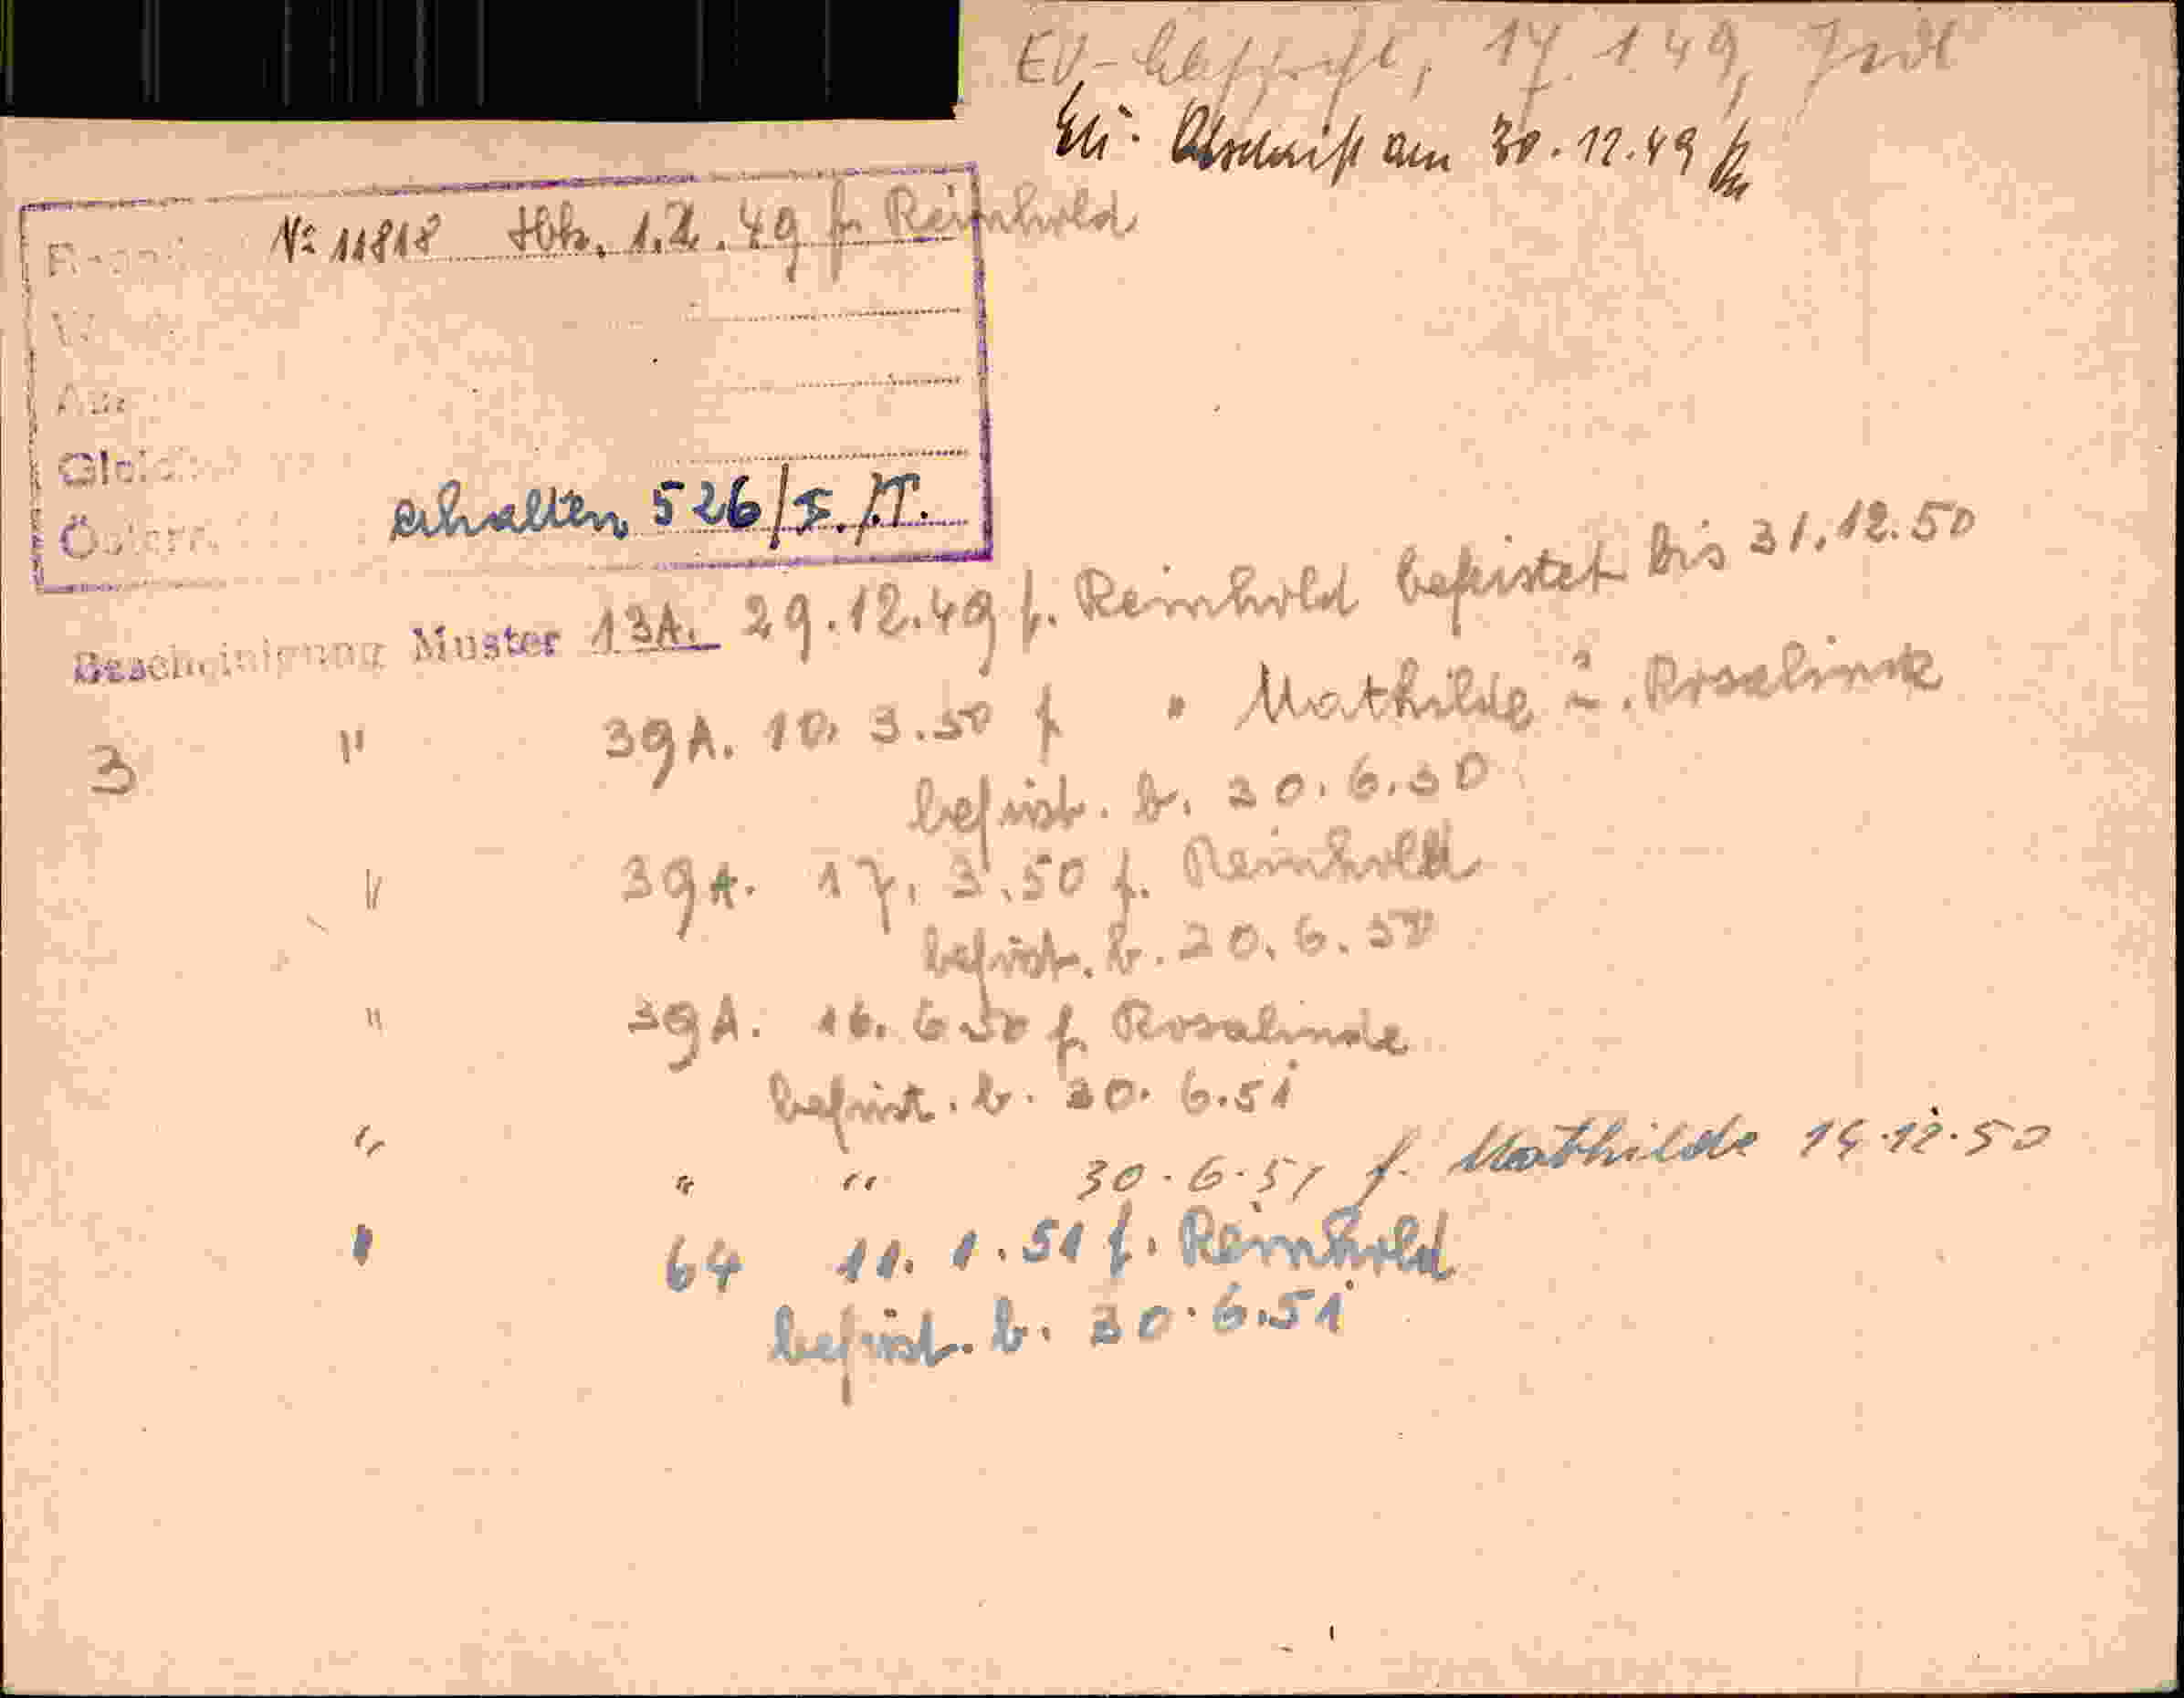 EV-Abschrift, 17.1.49,
EV. Abschrift am 30.12.49
№ 11818 Hbk. 1.2.49 f. Reinhold
Gleich
Österr.
erhalten 526/I./T.
Bescheinigung Muster 13A. 29.12.49 f. Reinhold befristet bis 31.12.50
3 " 39A. 10. 3.50 f " Mathilde u. Rosalinde
befrist. b. 30.6.50
" 39A. 17. 3.50 f. Reinhold
befrist. b. 30.6.50
" 39A. 16.6.50 f. Rosalinde
befrist. b. 30.6.51
" " " 30.6.51 f. Mathilde 14.12.50
" 64 11.1.51 f. Reinhold
befrist. b. 30.6.51